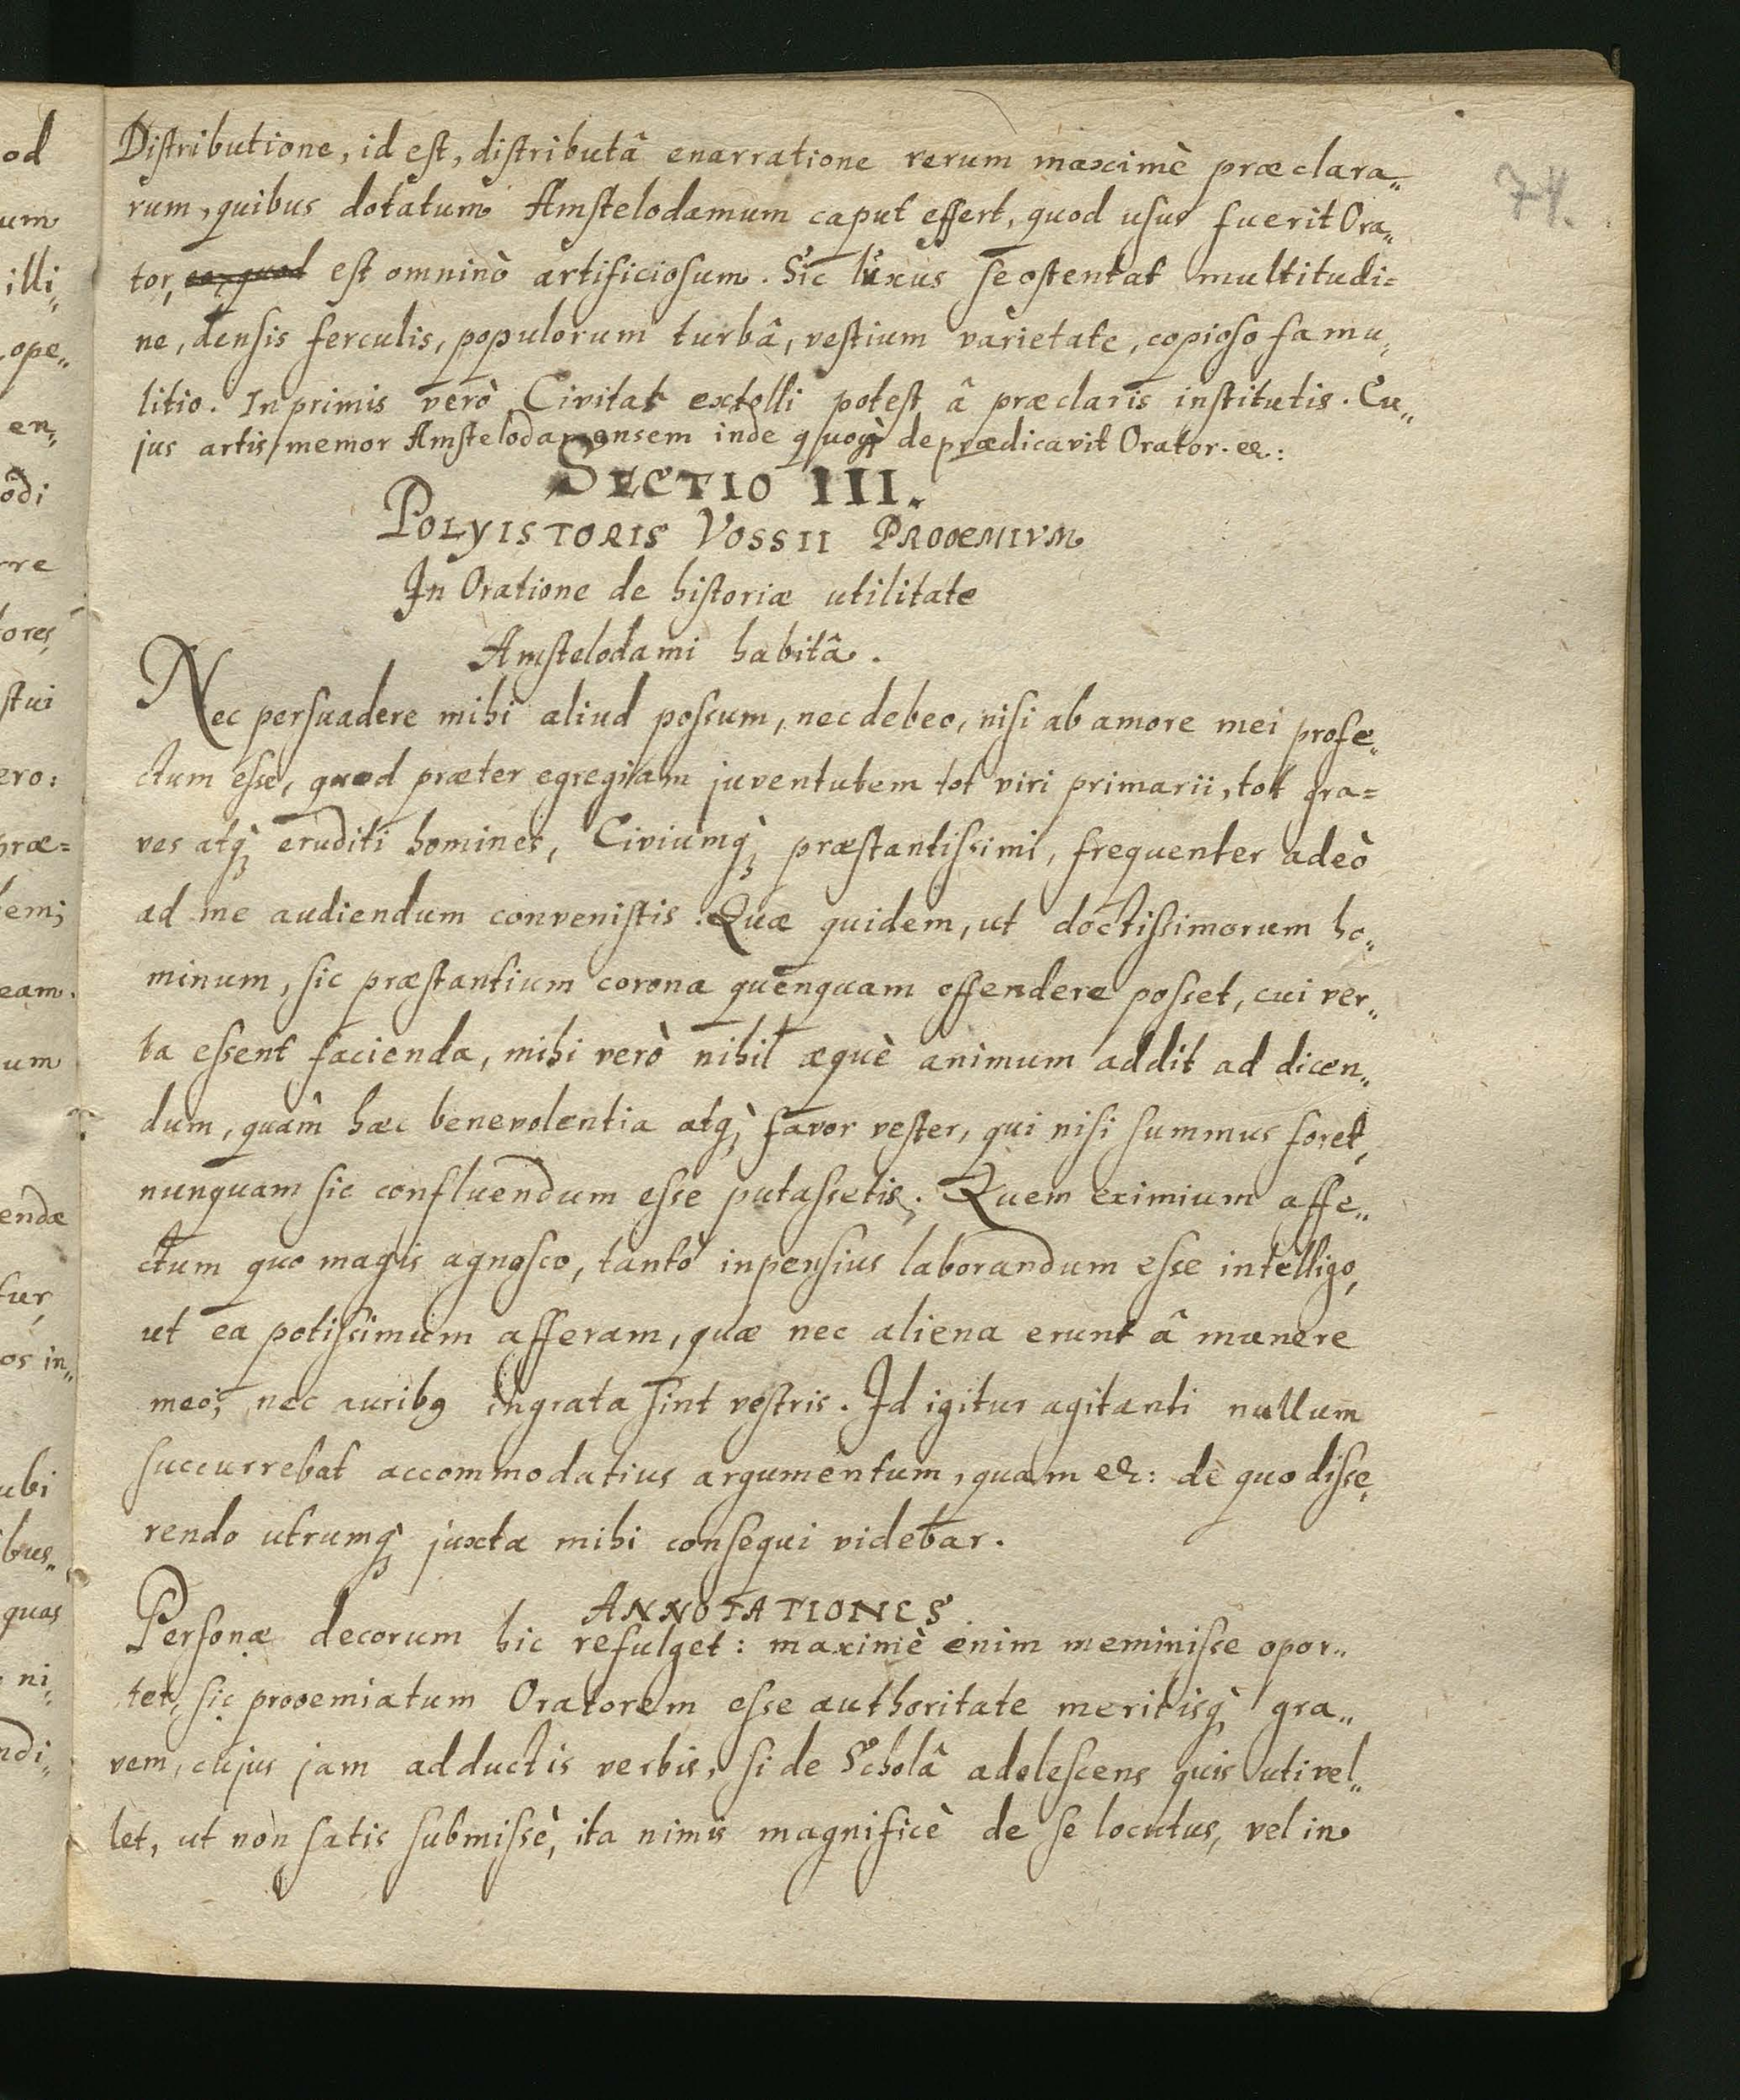 Distributione, id est, distributâ enarratione rerum maximè præclara„
rum, quibus dotatum Amstelodamum caput effert, quod usus fuerit Ora„
tor, est omninò artificiosum. Sic luxus se ostentat multitudi=
ne, densis ferculis, populorum turbâ, vestium varietate, copioso famu„
litio. Inprimis verò Civitas extolli potest â præclaris institutis. Cu„
jus artis memor Amstelodamensem inde quoq; deprædicavit Orator. &:
SECTIO III.
POLYISTORIS VOSSII PROOEMIVM
In Oratione de historiæ utilitate
Amstelodami habitâ.
Nec persuadere mihi aliud possum, nec debeo, nisi ab amore mei profe„
ctum esse, quod præter egregiam juventutem tot viri primarii, tot gra=
ves atq; eruditi homines, Civiumq; præstantissimi, frequenter adeò
ad me audiendum convenistis. Quæ quidem, ut doctissimorum ho„
minum, sic præstantium corona quenquam offendere posset, cui ver„
ba essent facienda, mihi verò nihil æquè animum addit ad dicen„
dum, quâm hæc benevolentia atq; favor vester, qui nisi summus foret,
nunquam sic confluendum esse putassetis. Quem eximium affe„
ctum quo magis agnosco, tantò inpensius laborandum esse intelligo,
ut ea potissimum afferam, quæ nec aliena erunt â munere
meo, nec auribq ingrata sint vestris. Id igitur agitanti nullum
succurrebat accommodatius argumentum, quam &: de quo disse„
rendo utrumq; juxta mihi consequi videbar.
ANNOTATIONES.
Personæ decorum hic refulget: maximè enim meminisse opor„
tet, sic prooemiatum Oratorem esse authoritate meritisq; gra„
vem, cujus jam adductis verbis, si de Scholâ adolescens quis uti vel„
let, ut non satis submissè, ita nimis magnificè de se locutus, vel in
74.
od
um
illi„
ope„
en„
ôdi
rre
tores,
stui
ero:
præ=
em;
eam.
um
endæ
tur,
os in„
ubi
bus„
quas
ni„
ndi„